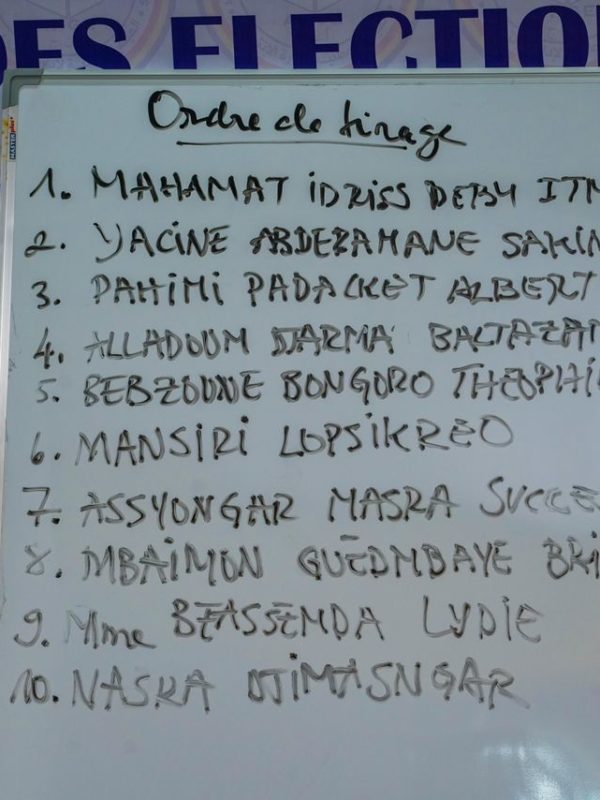 DES ELECTION
Ordre de tirage
1. MAHAMAT IDRISS DEBY ITN
2. YACINE ABDERAMANE SAKIN
3. PAHIMI PADACKET ALBERT
4. ALLADOUM DJARMA BALTAZAR
5. BEBZOUNE BONGORO THEOPHIL
6. MANSIRI LOPSIKREO
7. ASSYONGAR MASRA SUCCE
8. MBAIMON GUEDMBAYE BRI
9. Mme BEASSEMDA LYDIE
10. NASRA DJIMASNGAR